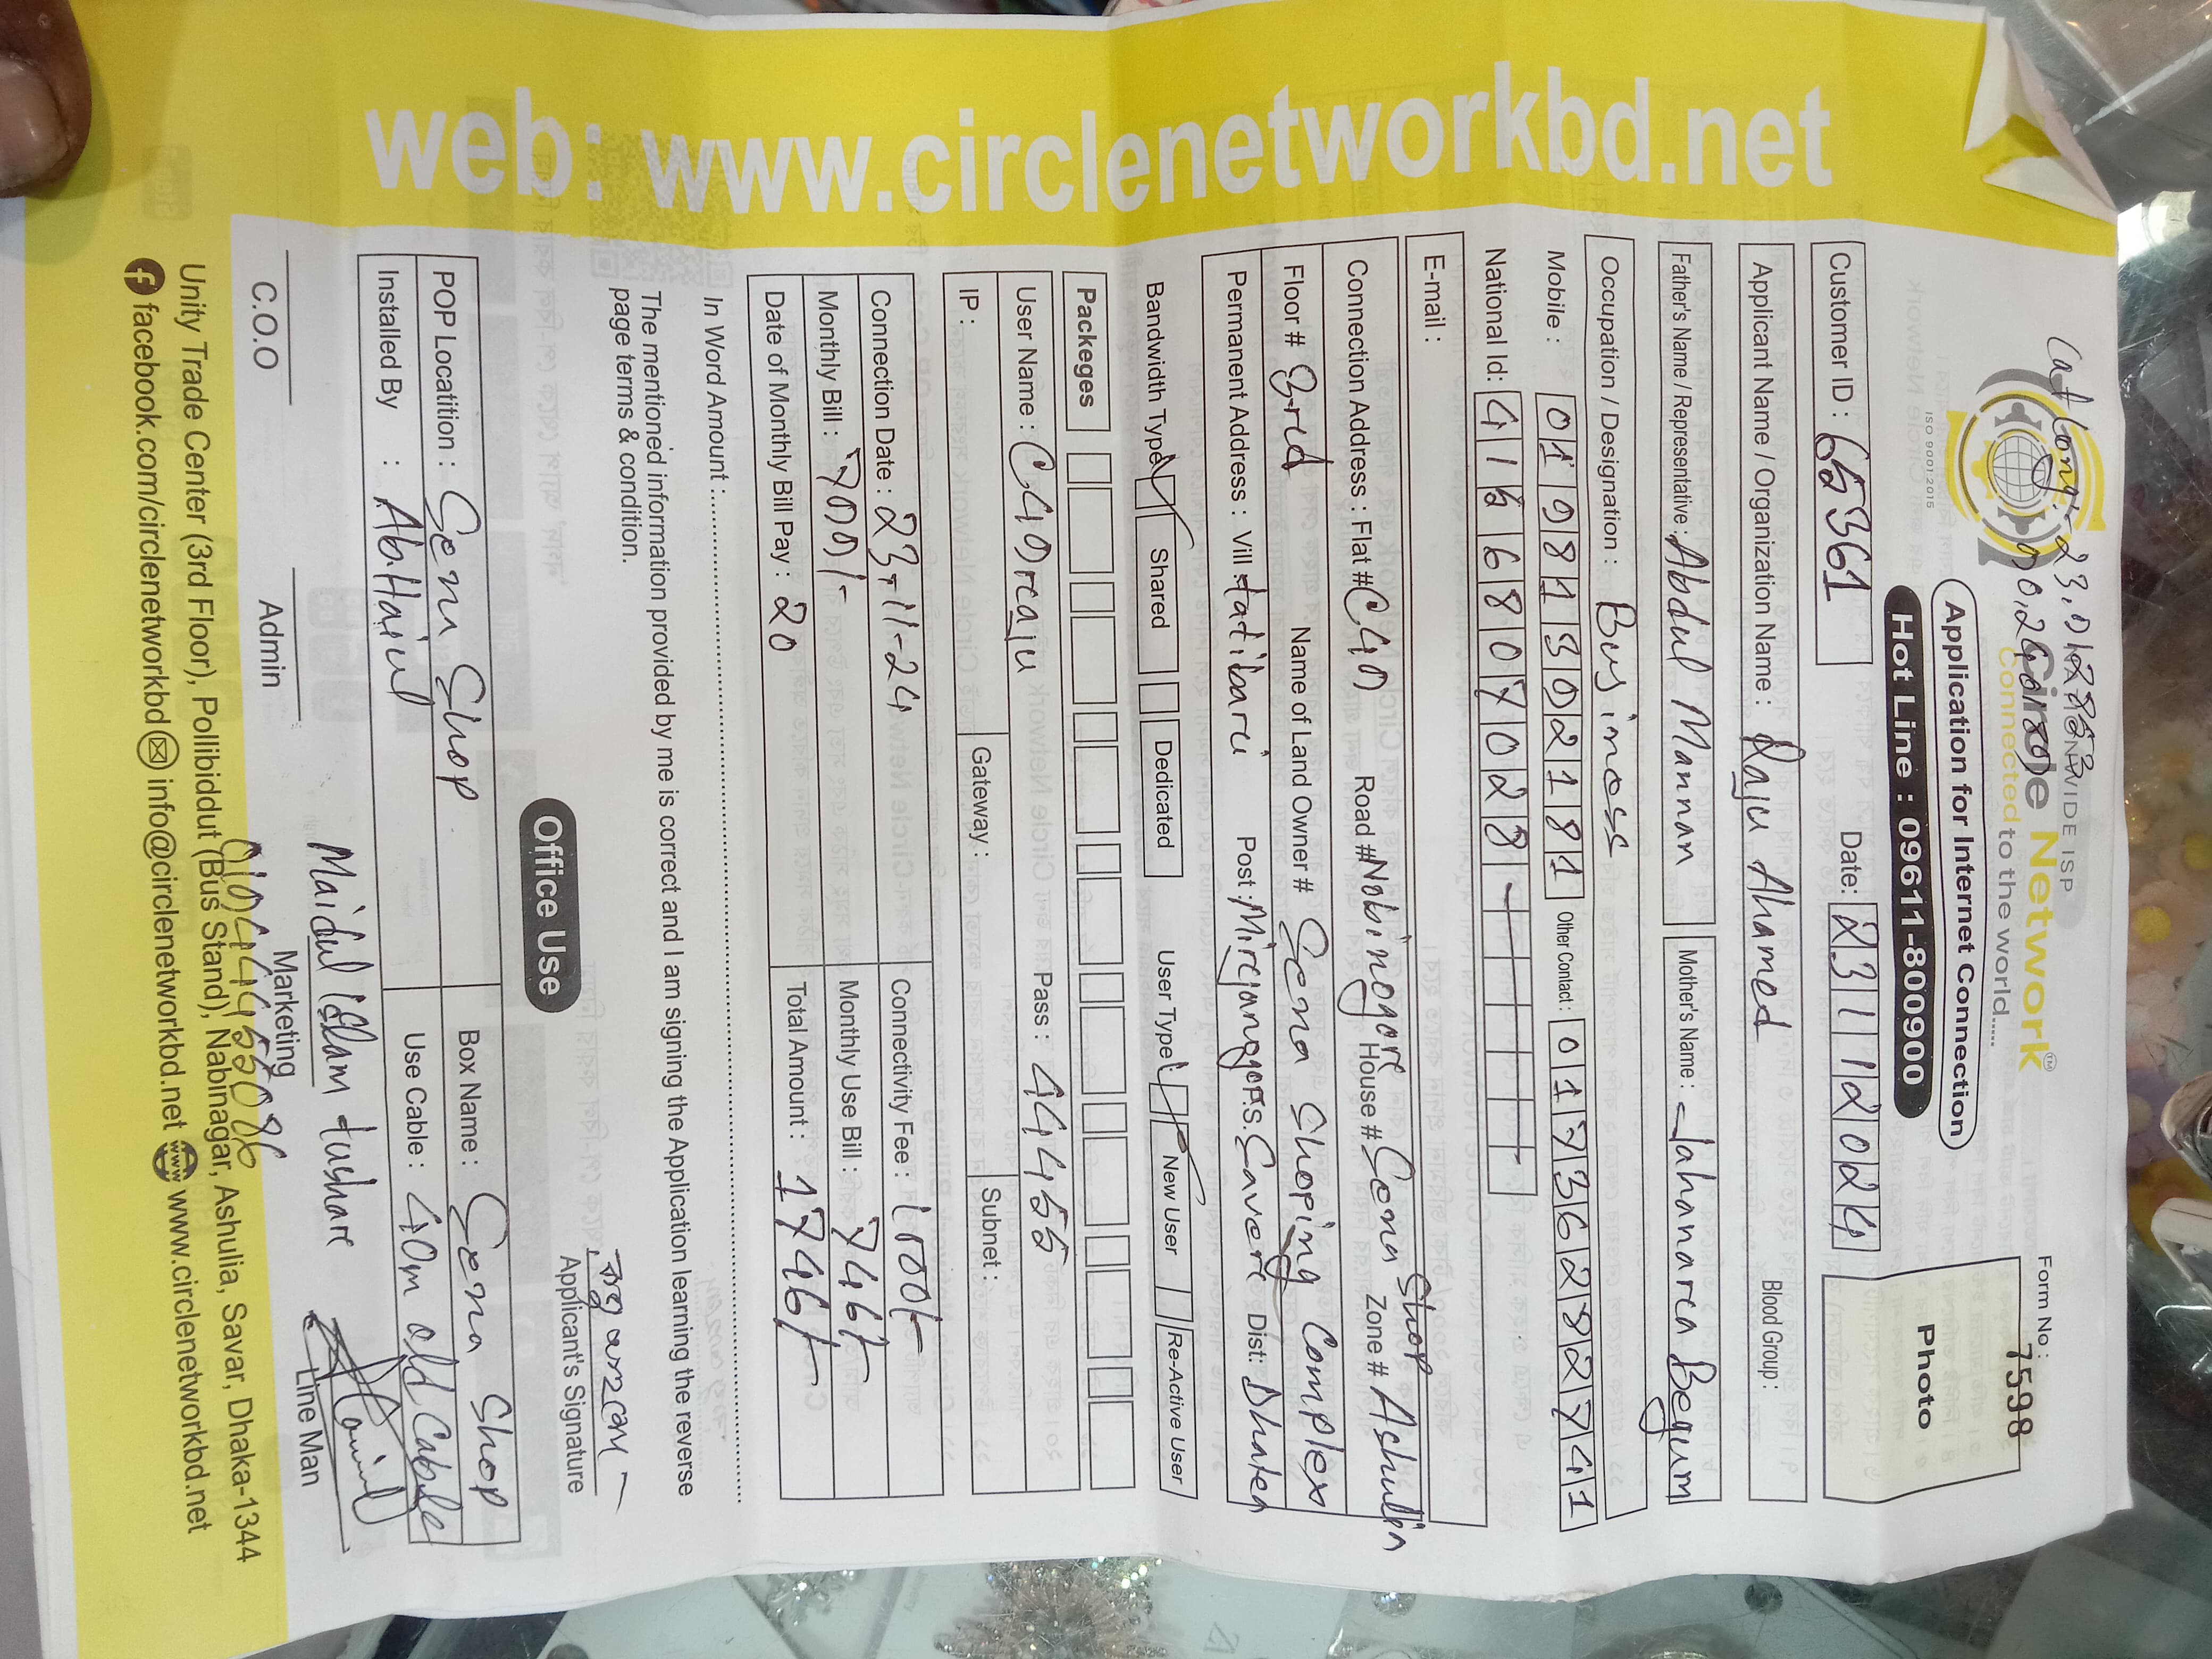 web: www.circlenetworkbd.net
Form No: 7598
ISO 9001:2015
NATIONWIDE ISP
Circle Network™
Connected to the world.....
Application for Internet Connection
Hot Line : 09611-800900
Photo
Customer ID : 65361 Date: 23112024
Applicant Name / Organization Name : Raju Ahamed Blood Group :
Father's Name / Representative : Abdul Mannan Mother's Name : Jahanarea Begum
Occupation / Designation : Business
Mobile : 01981302181 Other Contact : 01736282741
National Id: 4156807028
E-mail :
Connection Address : Flat # C40 Road # Nobinogore House # Sena Shop Zone # Ashulia
Floor # 3rd Name of Land Owner # Sena Shoping Complex
Permanent Address : Vill : tatibari Post : Mirejanggo P.S. Savare Dist: Dhaka
Bandwidth Type Shared Dedicated User Type New User Re-Active User
Packeges
User Name : C40raju Pass : 44455
IP : Gateway : Subnet :
Connection Date : 23-11-24 Connectivity Fee : 1000/-
Monthly Bill : 700/- Monthly Use Bill : 746/-
Date of Monthly Bill Pay : 20 Total Amount : 1746/-
In Word Amount :
The mentioned information provided by me is correct and I am signing the Application learning the reverse
page terms & condition.
Applicant's Signature
Office Use
POP Locatition : Sena Shop Box Name : Sena Shop
Installed By : Ab.Haiul Use Cable : 40m old Cable
Maidul Islam tushare
C.O.O Admin Marketing Line Man
Unity Trade Center (3rd Floor), Pollibiddut (Bus Stand), Nabinagar, Ashulia, Savar, Dhaka-1344
facebook.com/circlenetworkbd info@circlenetworkbd.net www.circlenetworkbd.net